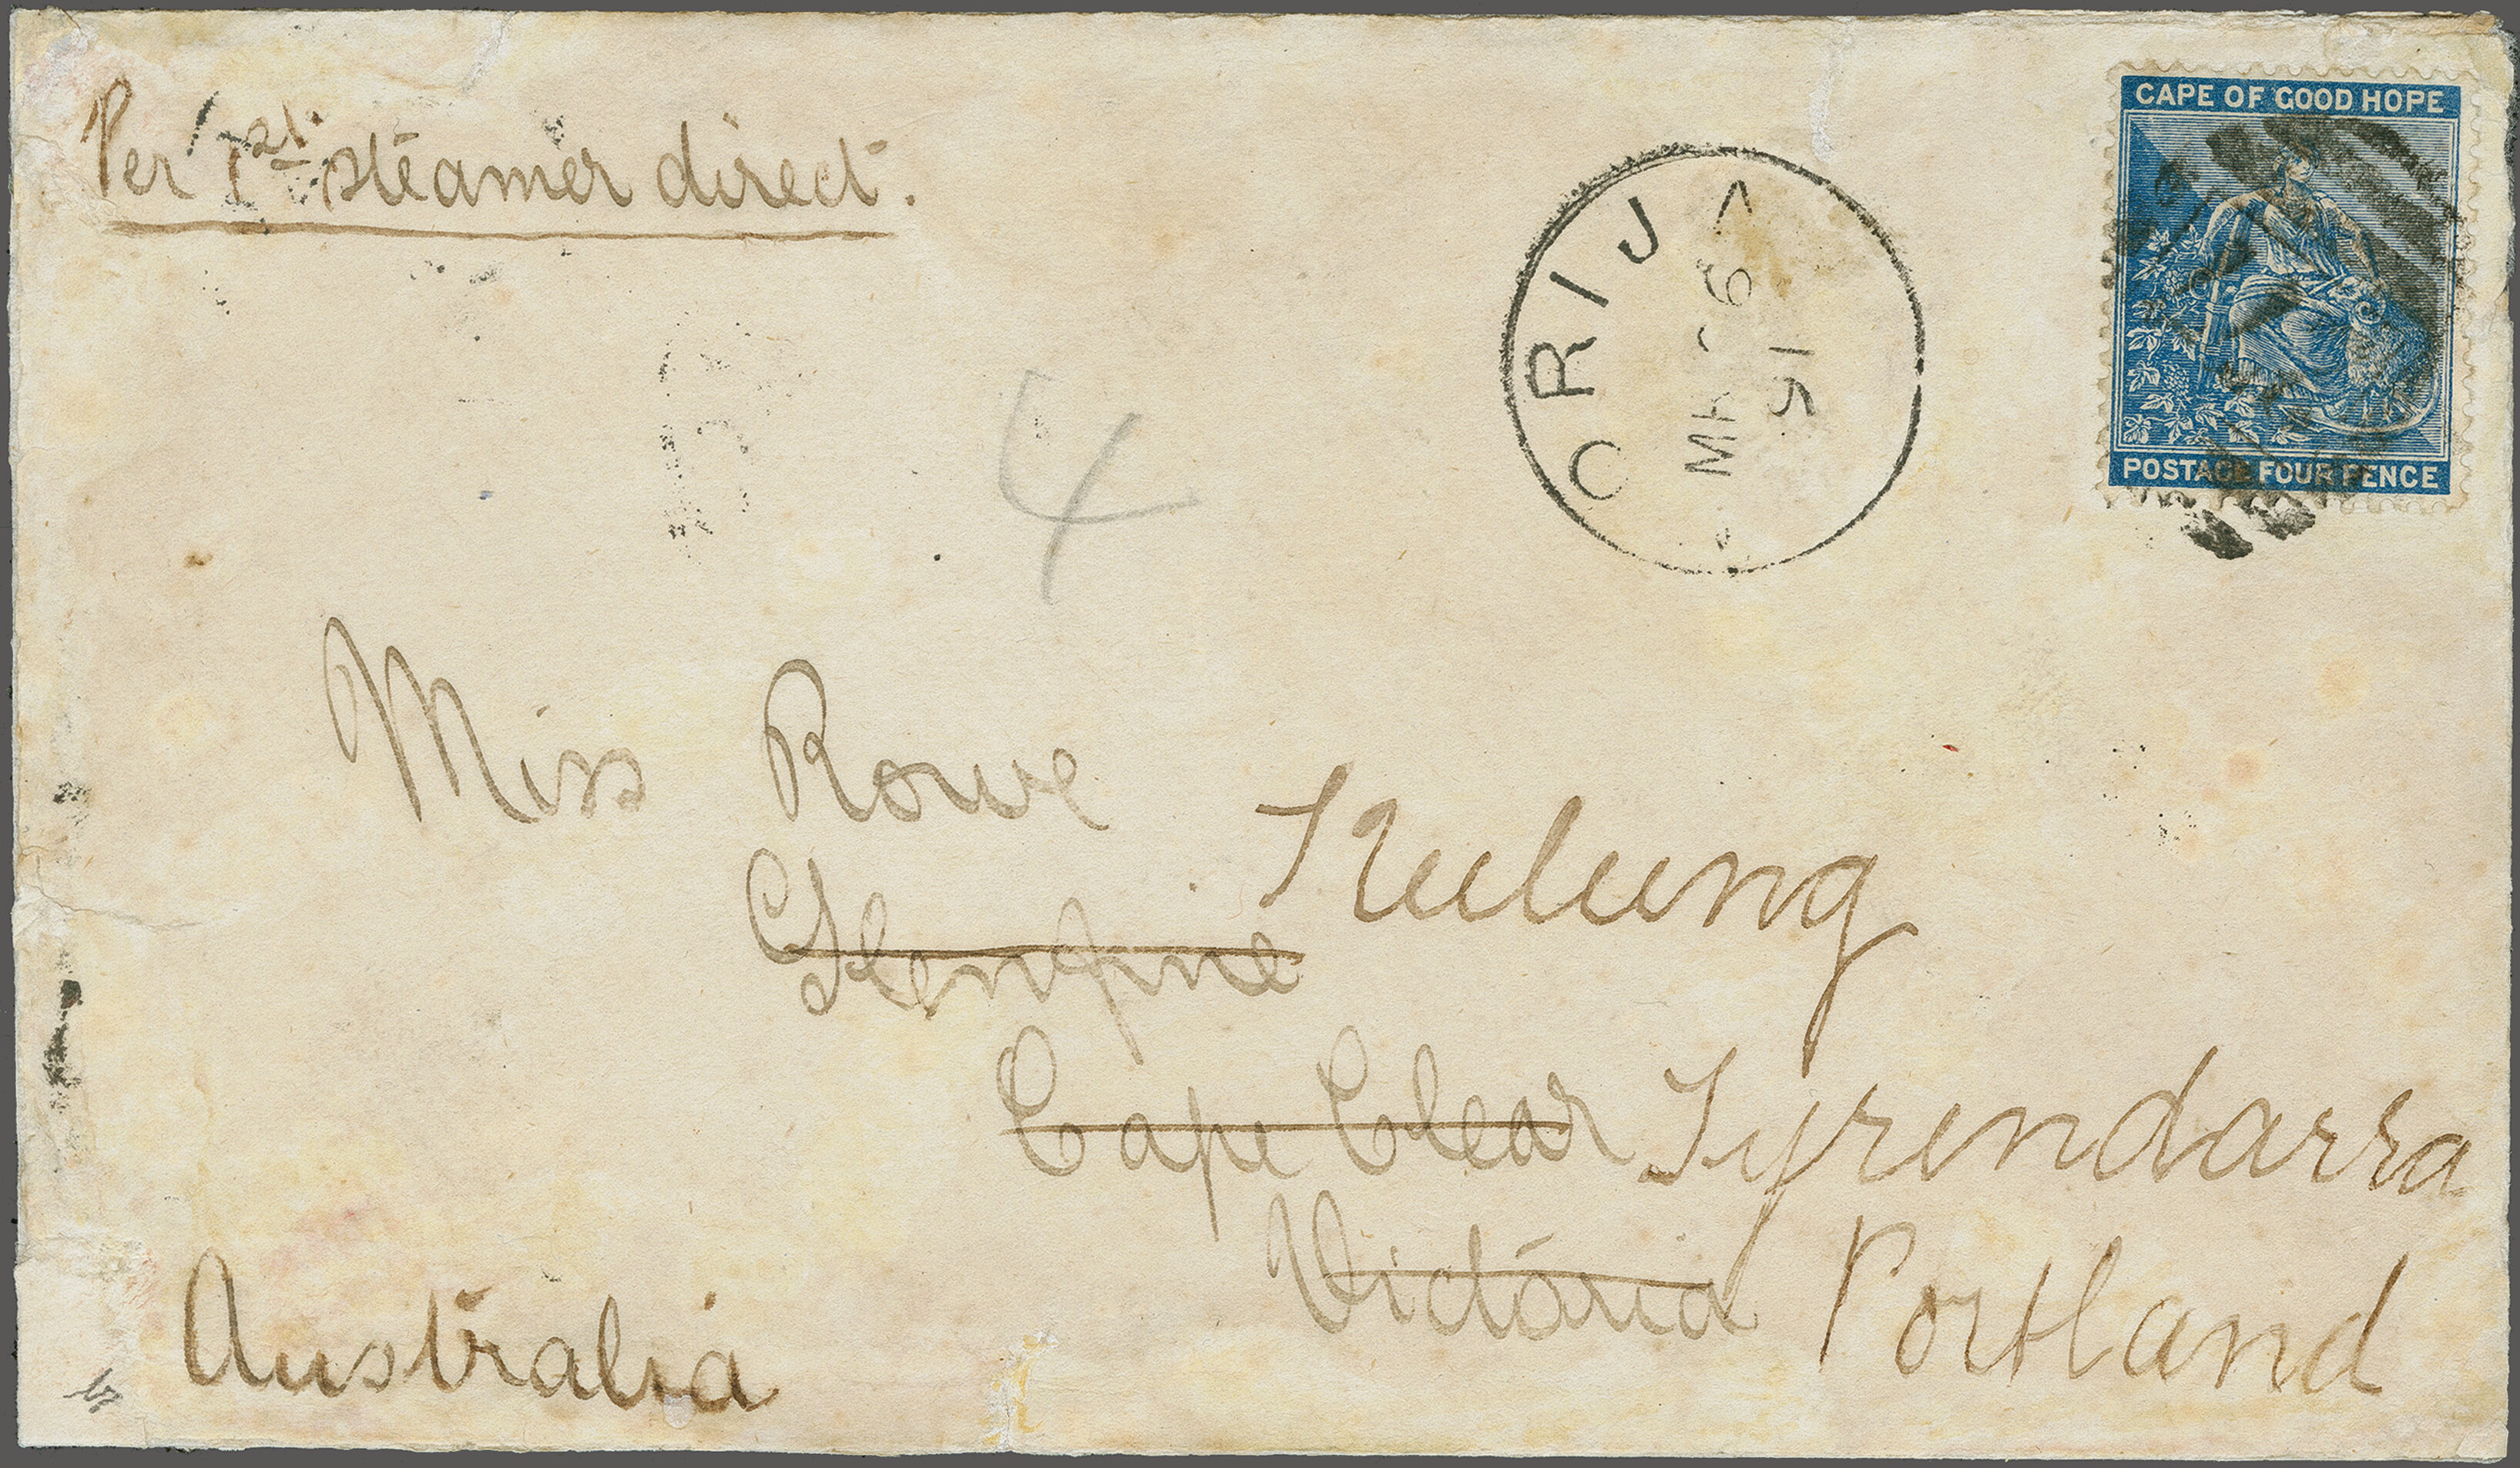 Per 1st steamer direct.
CAPE OF GOOD HOPE
POSTAGE FOUR PENCE
ORIJ
91
4
Miss Rowe
Glenfine
Kulung
Cape Clear
Tyrendarra
Victoria
Portland
Australia